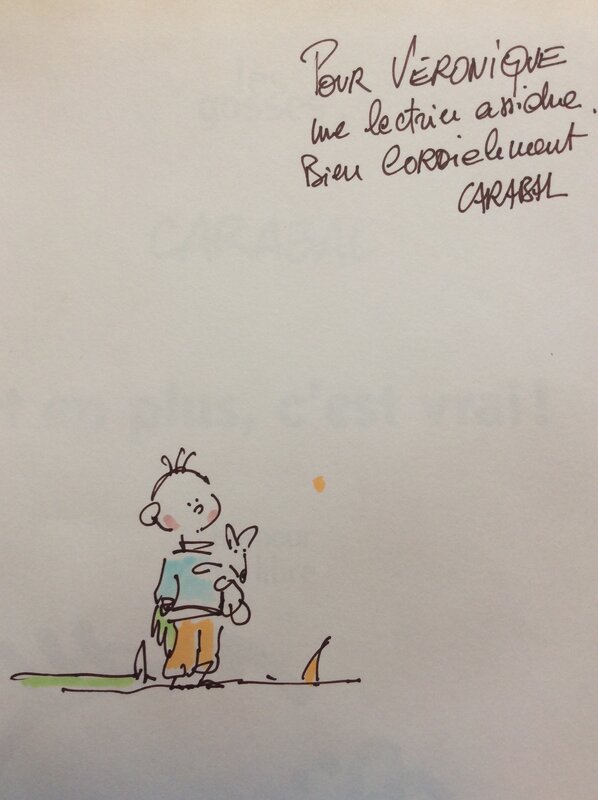 POUR VÉRONIQUE
une lectrice assidue.
Bien CORDIALEMENT
CARABAL
CARABAL
t en plus, c'est vrai!